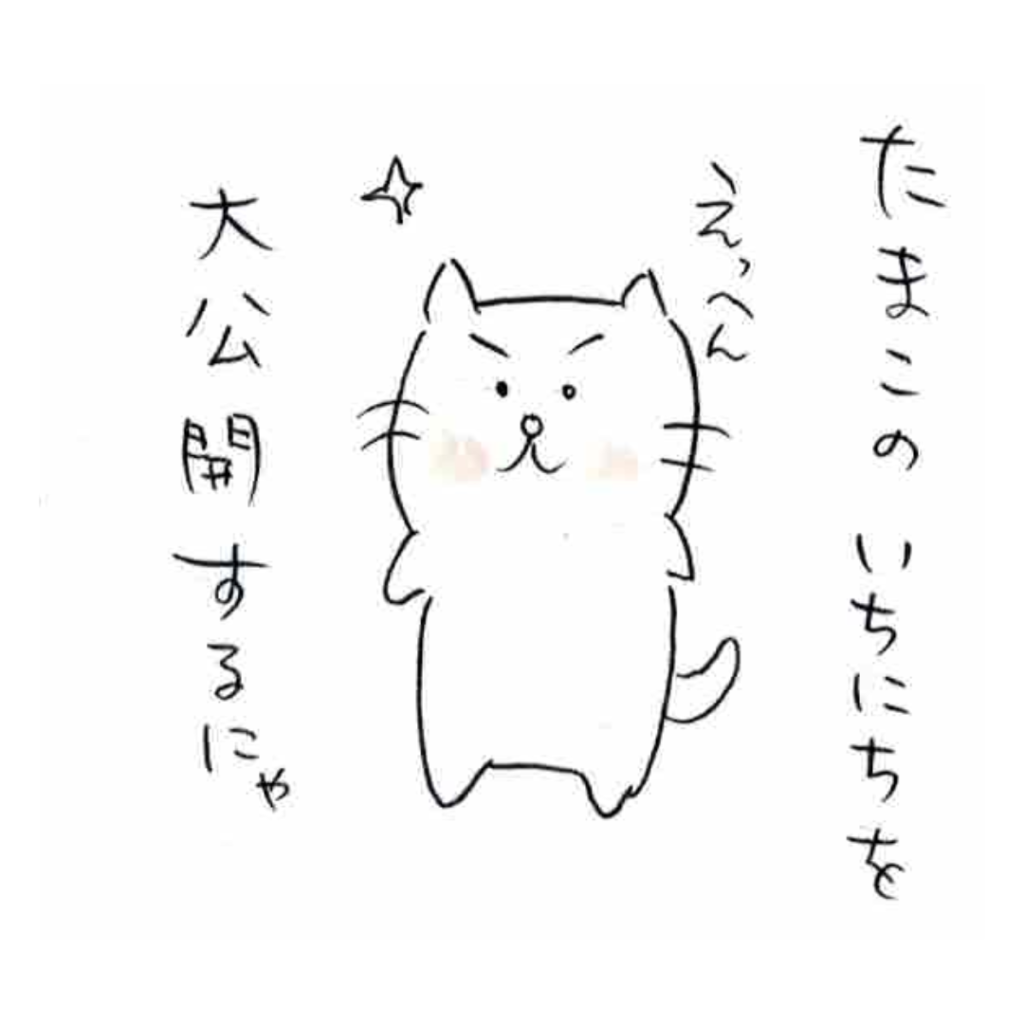 たまこのいちにちを
えっへん
大公開するにゃ